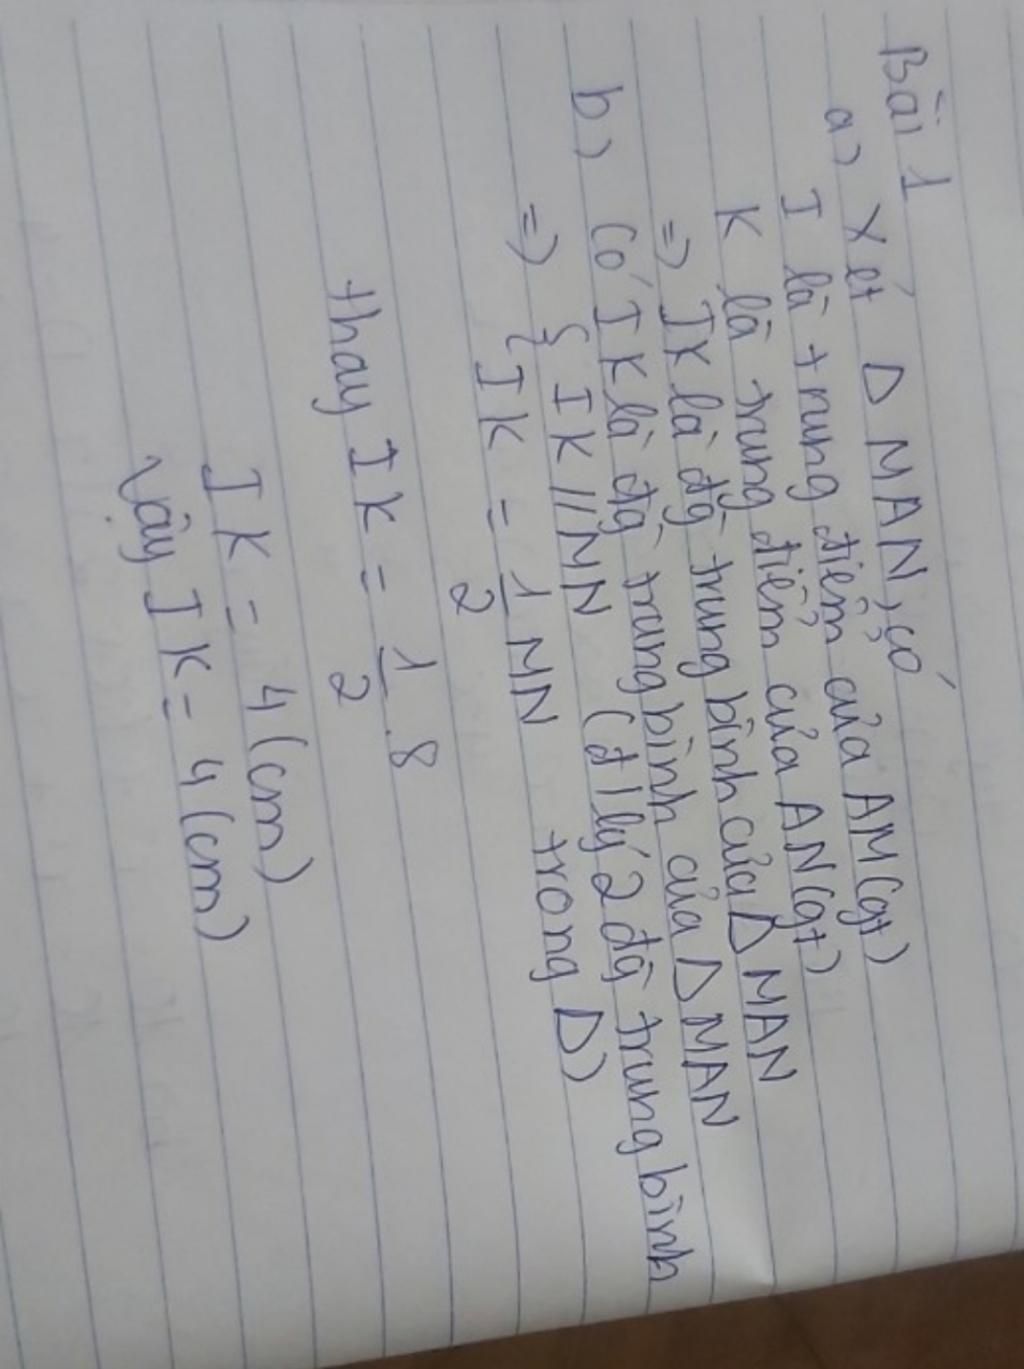 Bài 1
a) Xét Δ MAN, có
I là trung điểm của AM(gt)
K là trung điểm của AN(gt)
=) IK là đg trung bình của Δ MAN
b) Có IK là đg trung bình của Δ MAN
=) { IK // MN (đ lý 2 đg trung bình
{ IK = 1/2 MN trong Δ)
thay IK = 1/2 . 8
IK = 4 (cm)
Vậy IK = 4 (cm)